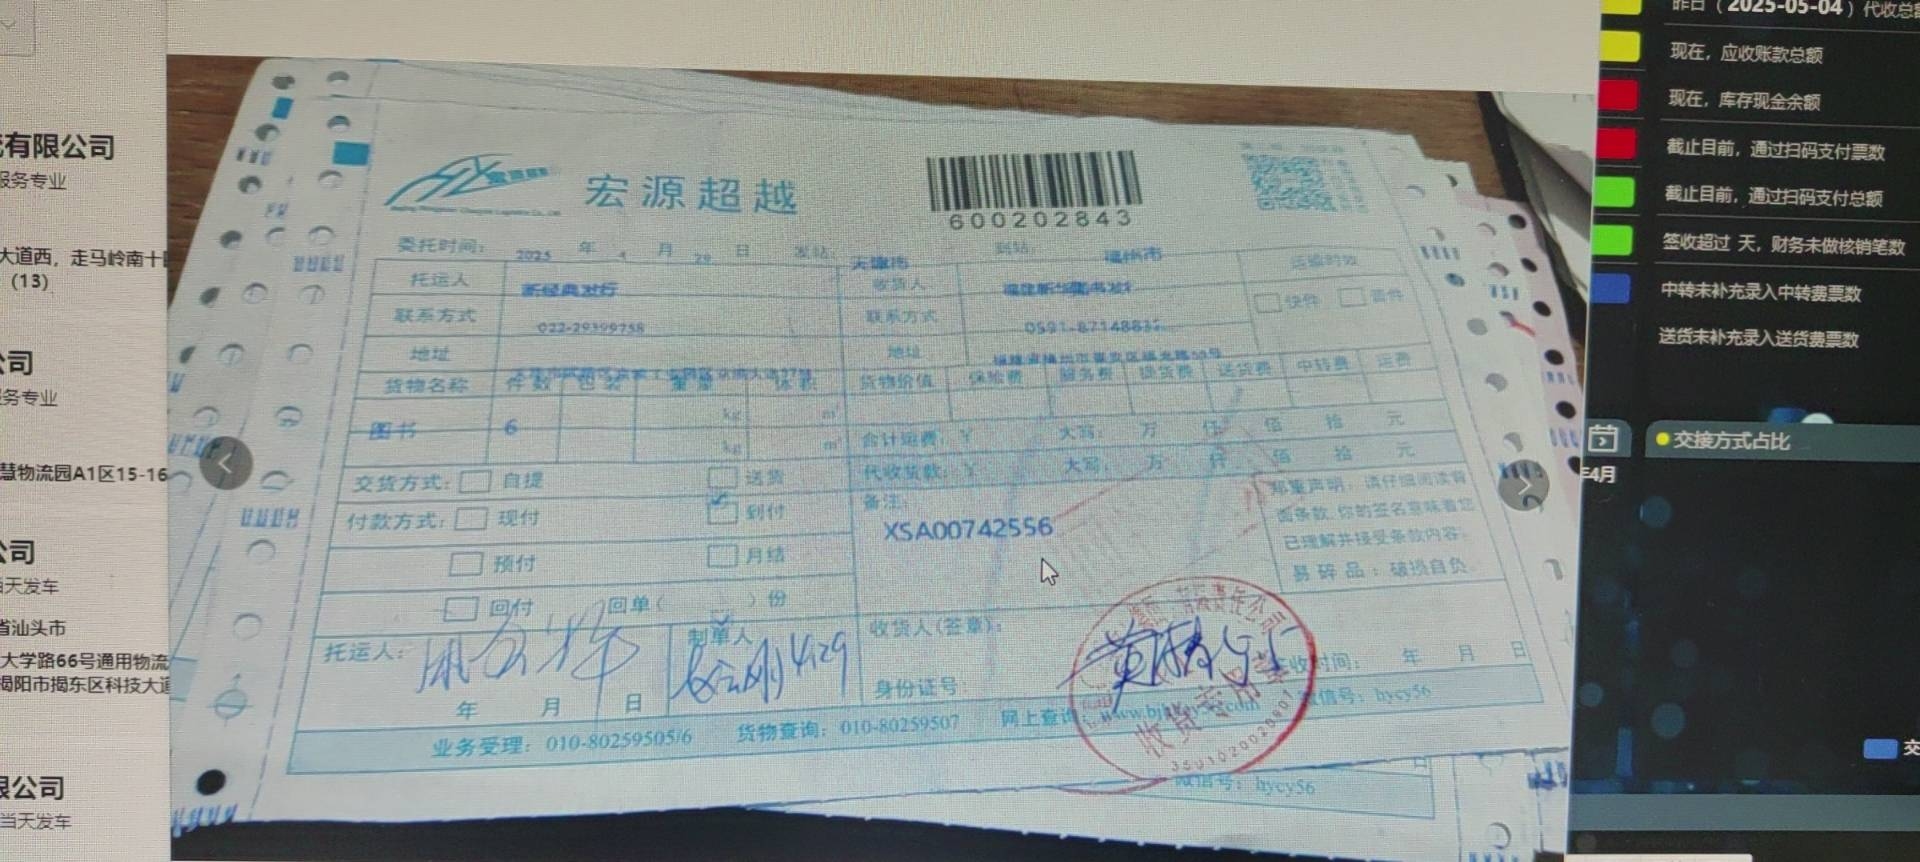 有限公司
服务专业
大道西，走马岭南十
(13)
公司
务专业
慧物流园A1区15-16
公司
当天发车
省汕头市
大学路66号通用物流
揭阳市揭东区科技大道
限公司
当天发车
宏源超越
600202843
委托时间： 2025 年 4 月 29 日 发站： 天津市 到站： 福州市
托运人 新经典发行 收货人 运输时效
联系方式 022-29399758 联系方式 快件 普件
地址 地址
货物名称 件数 包装 重量 体积 货物价值 保险费 服务费 提货费 送货费 中转费 运费
图书 6 kg m³
kg m³
合计运费：￥ 大写： 万 仟 佰 拾 元
代收货款：￥ 大写： 万 仟 佰 拾 元
交货方式： 自提 送货
付款方式： 现付 到付
预付 月结
回付 回单（ ）份
备注：
XSA00742556
郑重声明：请仔细阅读背
面条款，你的签名意味着您
已理解并接受条款内容。
易碎品：破损自负。
托运人：
年 月 日
制单人
4/29
收货人(签章)：
身份证号：
签收时间： 年 月 日
业务受理：010-80259505/6 货物查询：010-80259507 网上查询： 微信号：hycy56
收货专用章
微信号：hycy56
昨日（2025-05-04）代收总额
现在，应收账款总额
现在，库存现金余额
截止目前，通过扫码支付票数
截止目前，通过扫码支付总额
签收超过 天，财务未做核销笔数
中转未补充录入中转费票数
送货未补充录入送货费票数
交接方式占比
年4月
交